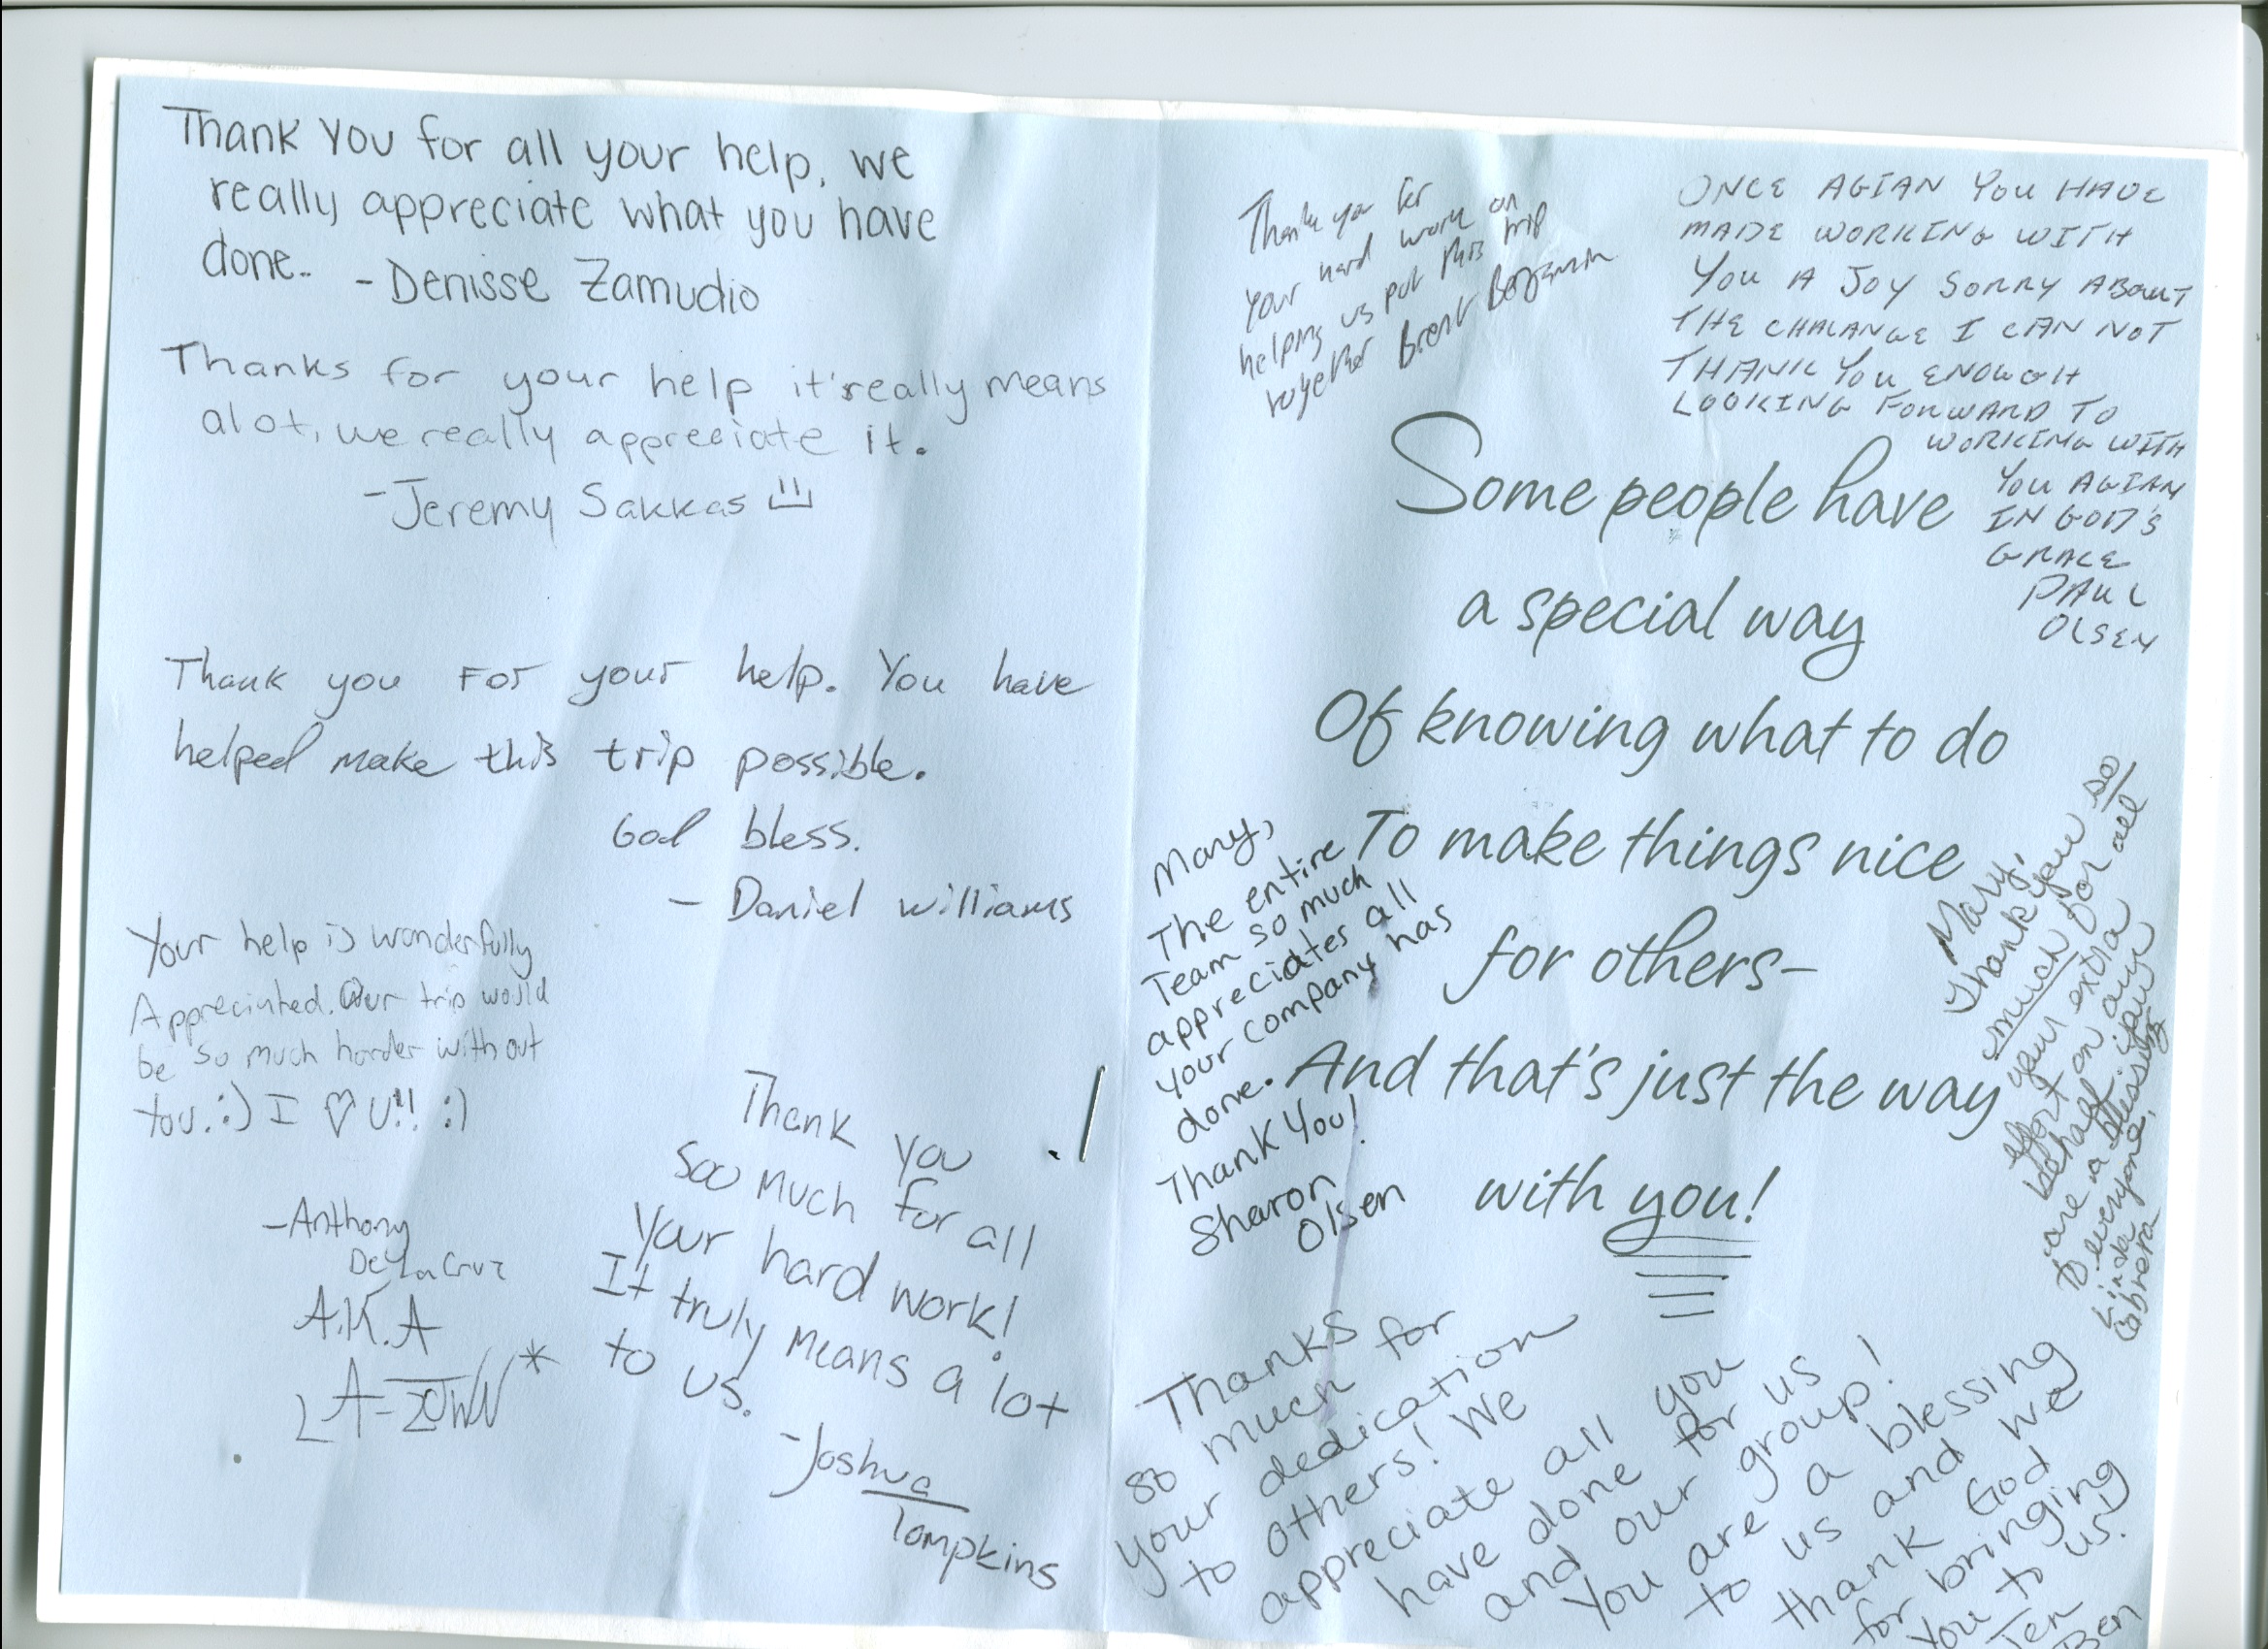 Thank You for all your help, we
really appreciate what you have
done..
-Denisse Zamudio
Thanks for your help it's really means
alot, we really appreciate it.
-Jeremy Sakkas
Thank you For your help. You have
helped make this trip possible.
God bless.
- Daniel Williams
Your help is wonderfully
Appreciated. Our trip would
be so much harder without
You. :) I ♡ U!! :)
-Anthony
DeLaCruz
A.K.A
Thank you
soo much for all
Your hard work!
It truly means a lot
to us.
-Joshua
Tompkins
Thank you for
your hard work on
helping us put this trip
together Brent Benjamin
ONCE AGIAN YOU HAVE
MADE WORKING WITH
YOU A JOY SORRY ABOUT
THE CHALANGE I CAN NOT
THANK YOU ENOUGH
LOOKING FORWARD TO
WORKING WITH
YOU AGIAN
IN GOD'S
GRACE
PAUL
OLSEN
Some people have
a special way
Of knowing what to do
To make things nice
for others-
And that's just the way
with you!
Mary,
The entire
Team so much
appreciates all
your company has
done.
Thank You!
Sharon
Olsen
Mary,
Thank you so
much for all
your extra
effort on our
behalf. You
are a blessing
to everyone.
Linda
Cabrera
Thanks
so much for
your dedication
to others! We
appreciate all you
have done for us
and our group!
You are a blessing
to us and we
thank God
for bringing
you to us!
Jen
Ben